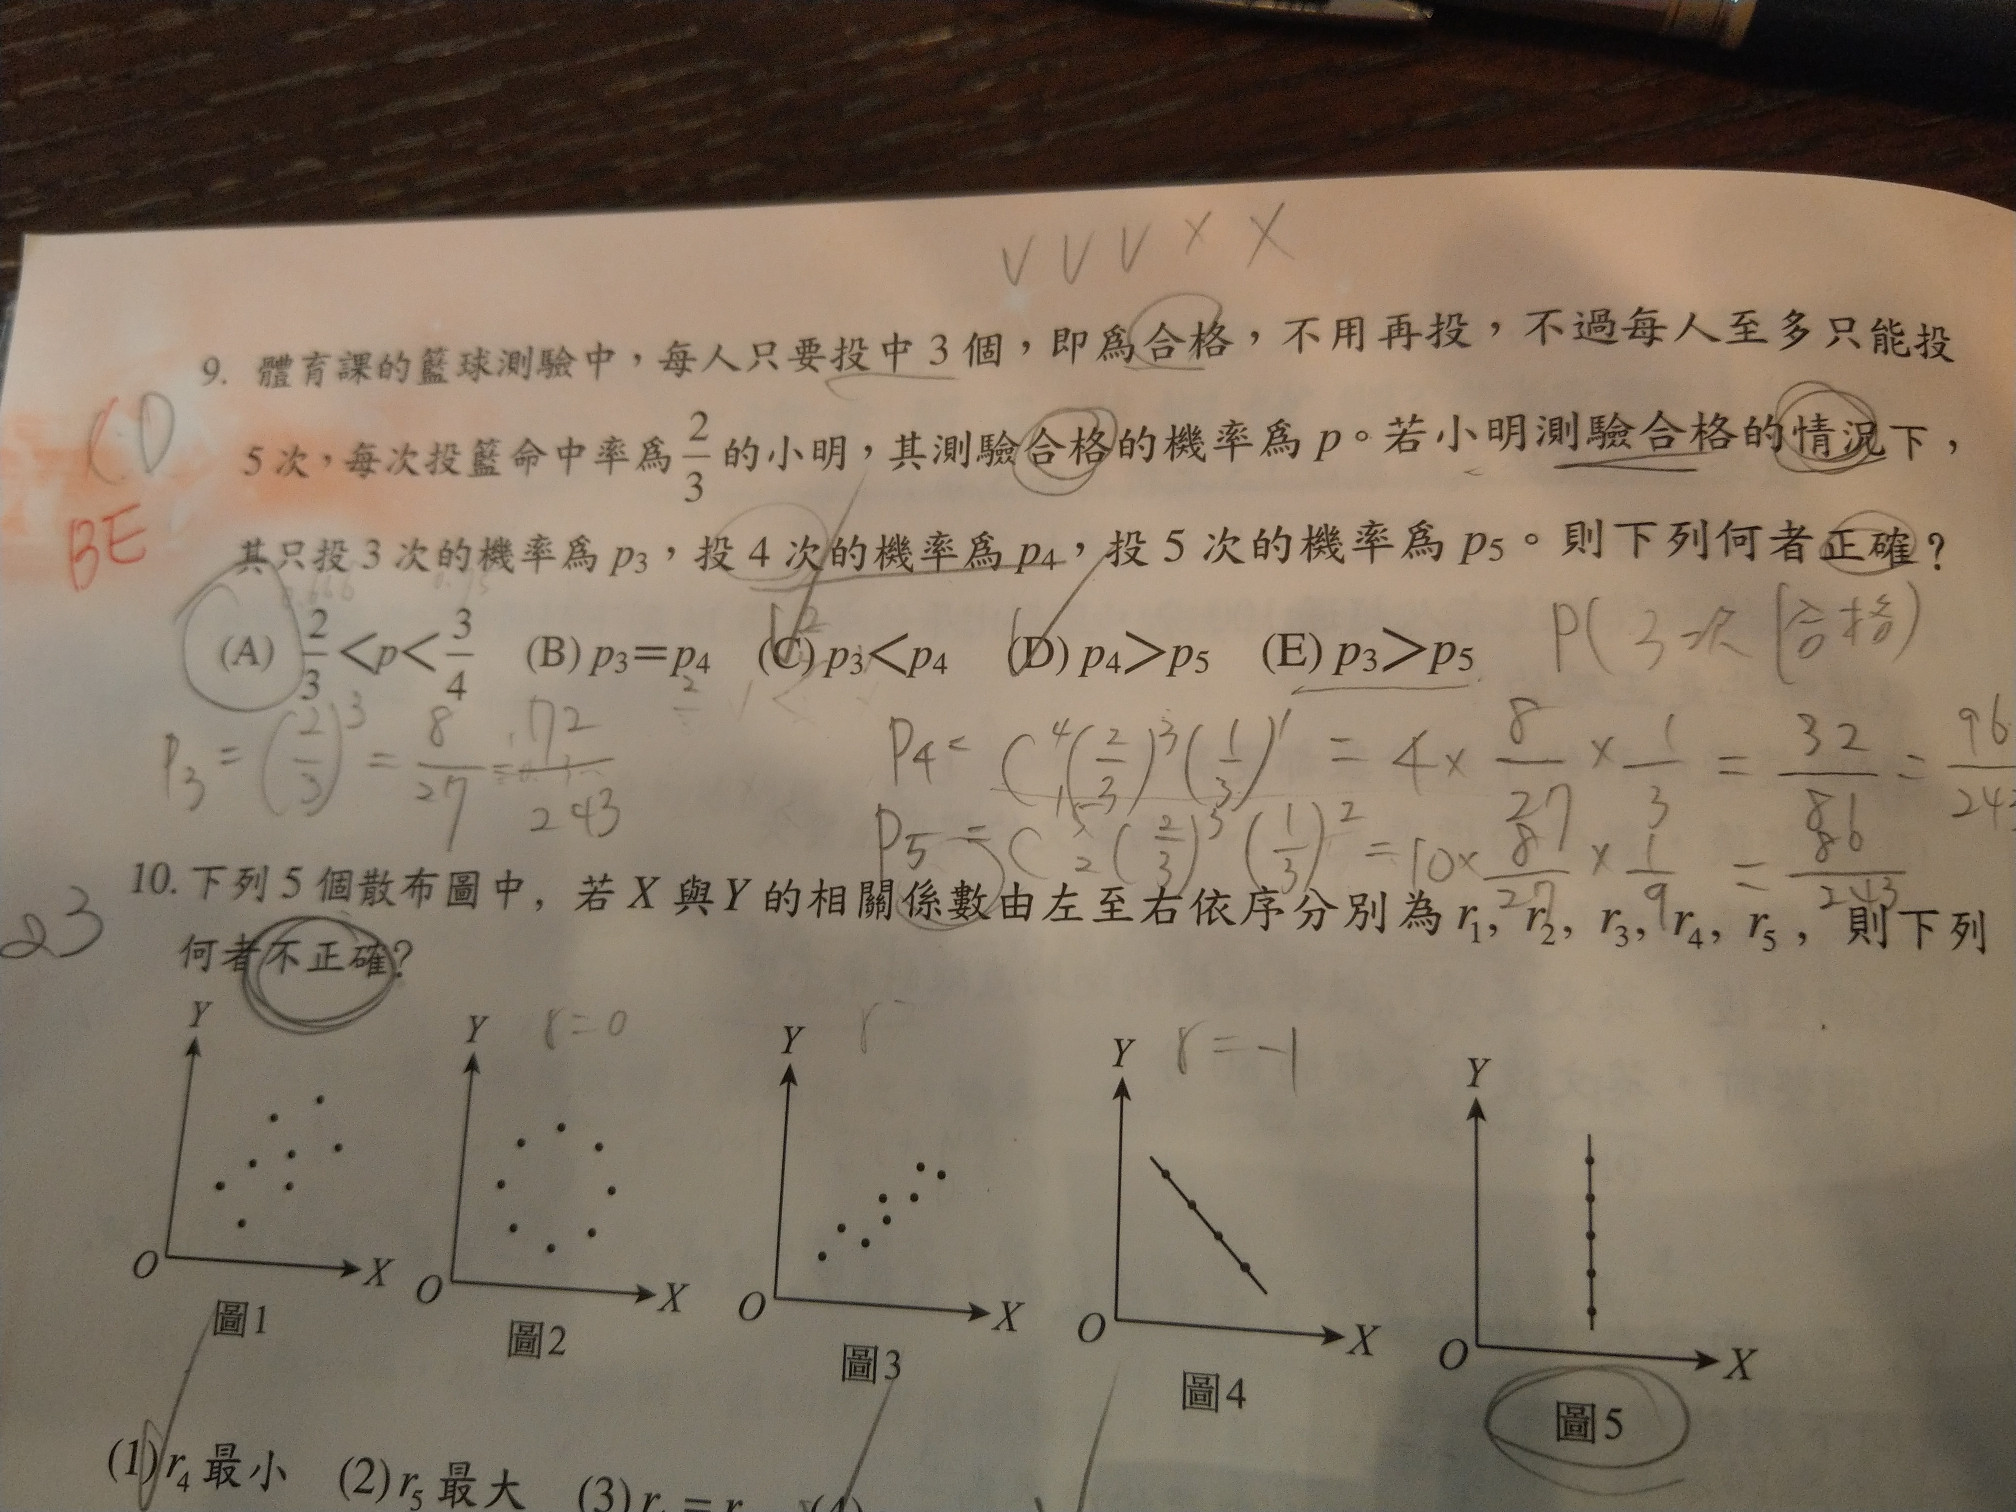 V V V X X
9. 體育課的籃球測驗中，每人只要投中3個，即爲合格，不用再投，不過每人至多只能投
CD
5次，每次投籃命中率爲 2/3 的小明，其測驗合格的機率爲 p。若小明測驗合格的情況下，
BE
其只投3次的機率爲 p₃，投4次的機率爲 p₄，投5次的機率爲 p₅。則下列何者正確？
(A) 2/3 < p < 3/4 (B) p₃ = p₄ (C) p₃ < p₄ (D) p₄ > p₅ (E) p₃ > p₅ P( 3次 | 合格)
P₃ = (2/3)³ = 8/27 = 72/243 P₄ = C⁴₁ (2/3)³ (1/3)¹ = 4 × 8/27 × 1/3 = 32/81 = 96
P₅ = C⁵₂ (2/3)³ (1/3)² = 10 × 8/27 × 1/9 = /243
10. 下列5個散布圖中，若 X 與 Y 的相關係數由左至右依序分別為 r₁, r₂, r₃, r₄, r₅，則下列
23
何者不正確?
r=0 r r=-1
Y Y Y Y Y
O X O X O X O X O X
圖1 圖2 圖3 圖4 圖5
(1) r₄ 最小 (2) r₅ 最大 (3)